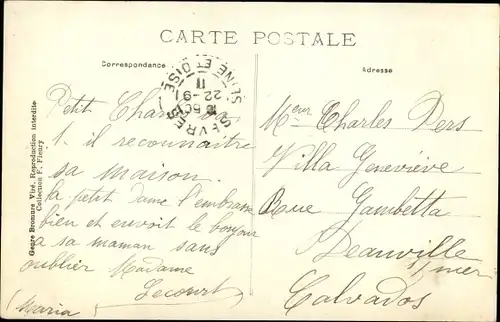 CARTE POSTALE
Correspondance
Adresse
SEVRES
SEINE ET OISE
22-9
11
Petit Charlot vas
t. il reconnaitre
sa maison.
la petit dame l'embrasse
bien et envoit le bonjour
a sa maman sans
oublier Madame
Lecourt
(Maria
Meur Charles Pers
Villa Geneviève
Rue Gambetta
Deauville
s/mer
Calvados
Genre Bromure Vité. Reproduction interdite
Collection F. Fleury